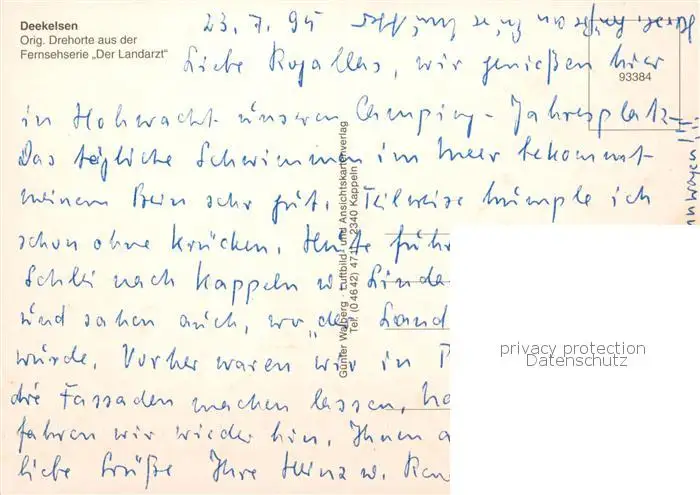 Deekelsen
Orig. Drehorte aus der
Fernsehserie „Der Landarzt"
23.7.95
Liebe Rogallas, wir genießen hier
93384
in Hohwacht unseren Camping-Jahresplatz
Das tägliche Schwimmen im Meer bekommt
meinem Bein sehr gut. Teilweise humple ich
schon ohne Krücken. Heute führ
Schlei nach Kappeln u. Linda
und sahen auch, wo „der Land
würde. Vorher waren wir in
die Fassaden machen lassen, ha
fahren wir wieder hin. Ihnen a
liebe Grüße Ihre Heinz u. Ren
Günter Walberg · Luftbild- und Ansichtskartenverlag
Tel. (04642) 471 · 2340 Kappeln
privacy protection
Datenschutz